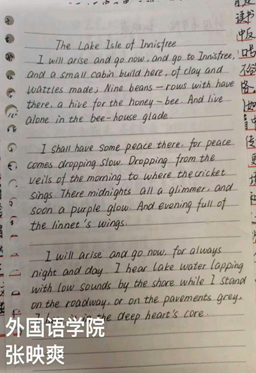 The Lake Isle of Innisfree
I will arise and go now, and go to Innisfree,
and a small cabin build here, of clay and
wattles made; Nine beans-rows will have
there, a hive for the honey-bee. And live
alone in the bee-house glade
I shall have some peace there, for peace
comes dropping slow. Dropping from the
veils of the morning to where the cricket
sings. There midnights all a glimmer, and
soon a purple glow. And evening full of
the linnet's wings.
I will arise and go now, for always
night and day. I hear Lake water lapping
with low sounds by the shore while I stand
on the roadway, or on the pavements grey,
the deep heart's core.
外国语学院
张映爽